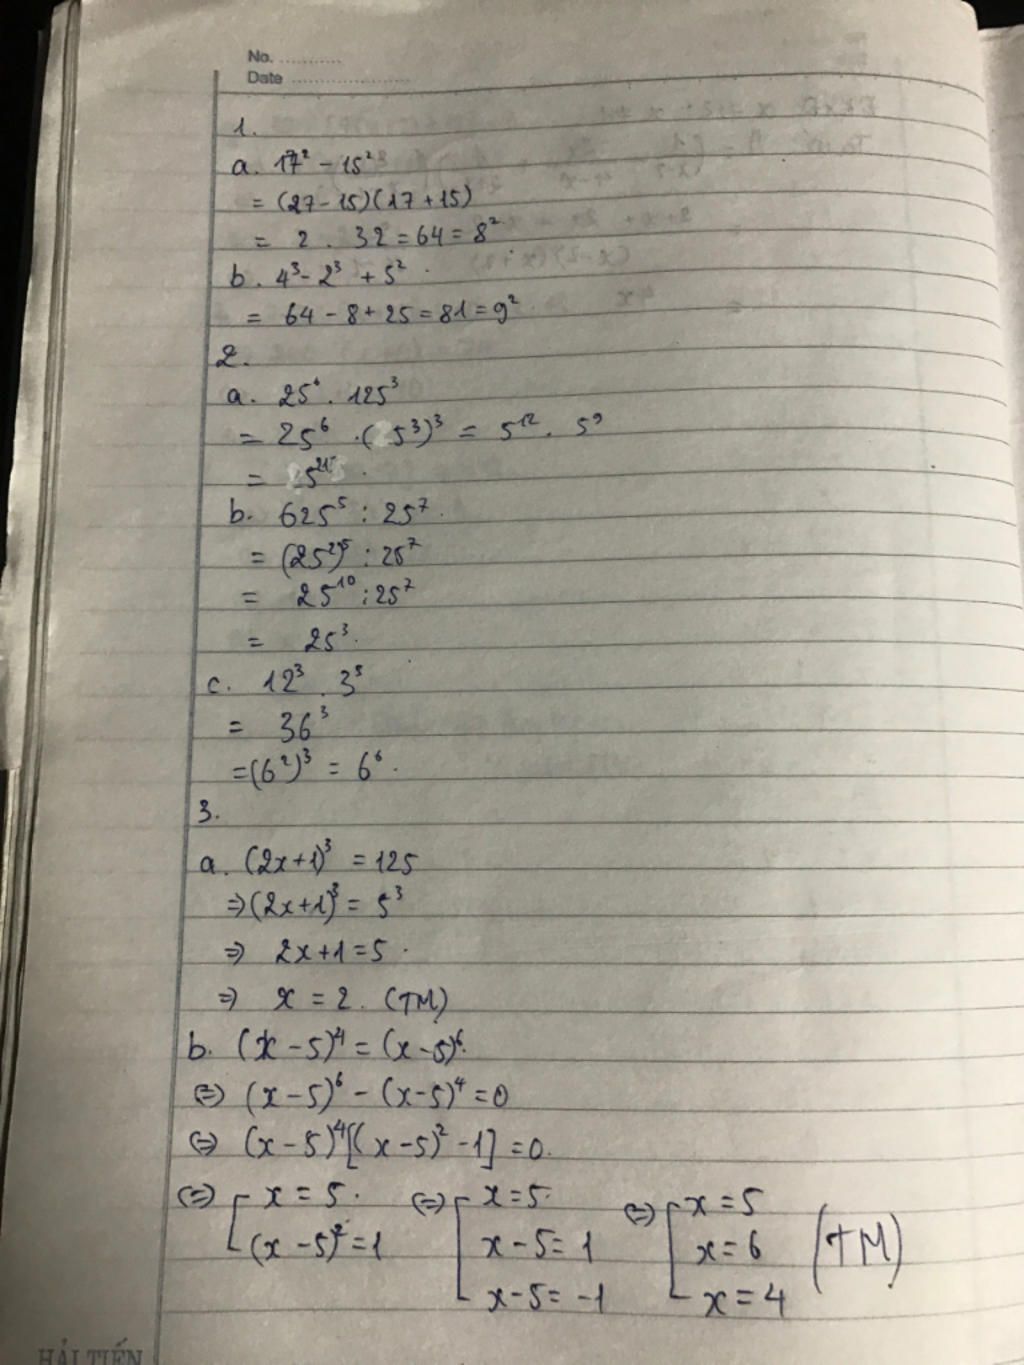 No. ............
Date ........................
1.
a. 17² - 15²
= (27-15)(17+15)
= 2 . 32 = 64 = 8²
b. 4³ - 2³ + 5²
= 64 - 8 + 25 = 81 = 9²
2.
a. 25⁶ . 125³
= 25⁶ . (5³)³ = 5¹² . 5⁹
= 5²¹
b. 625⁵ : 25⁷.
= (25²)⁵ : 25⁷
= 25¹⁰ : 25⁷
= 25³.
c. 12³ . 3³
= 36³
= (6²)³ = 6⁶.
3.
a. (2x+1)³ = 125
⇒ (2x+1)³ = 5³
⇒ 2x+1 = 5.
⇒ x = 2. (TM)
b. (x-5)⁴ = (x-5)⁶.
⇔ (x-5)⁶ - (x-5)⁴ = 0
⇔ (x-5)⁴[(x-5)² - 1] = 0.
⇔ [ x = 5. ⇔ [ x = 5. ⇔ [ x = 5
(x-5)² = 1 x-5 = 1 x = 6 (TM)
x-5 = -1 x = 4
HẢI TIẾN